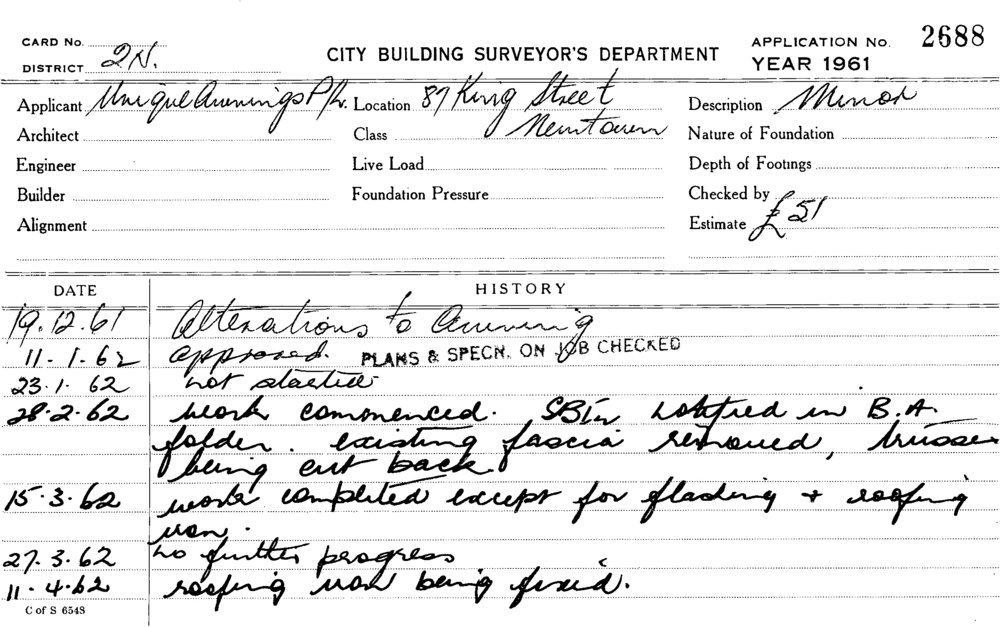 CARD No.
DISTRICT 2N.
CITY BUILDING SURVEYOR'S DEPARTMENT
APPLICATION No. 2688
YEAR 1961
Applicant Unique Awnings P/L. Location 87 King Street Description Minor
Architect Class Newtown Nature of Foundation
Engineer Live Load Depth of Footings
Builder Foundation Pressure Checked by
Alignment Estimate £51
DATE HISTORY
19.12.61 Alterations to Awning
11-1-62 approved. PLANS & SPECN. ON JOB CHECKED
23.1.62 not started
28.2.62 work commenced. notified in B.A.
folder. existing fascia removed, trusses
being cut back
15.3.62 work completed except for flashing + roofing
iron.
27.3.62 no further progress
11.4.62 roofing iron being fixed.
C of S 6548